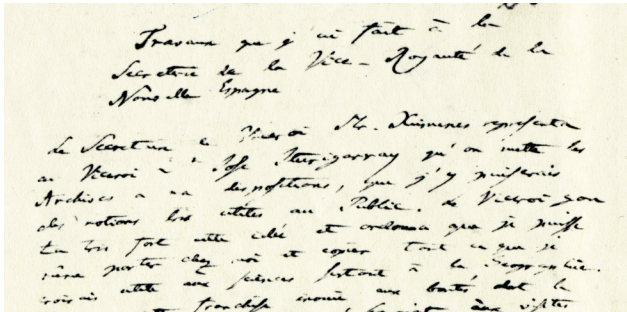 Travaux que j'ai fait à la
Secretrie de la Vice-Royauté de la
Nouvelle Espagne
Le Secretaire Viceroi Mr. Ximenes representa
au Viceroi Jose Iturigarray qu'on mette les
Archives a ma disposition, que j'y puiserais
des notions très utiles au Public. Le Viceroi gou
ta très fort cette idée et ordonna que je puisse
même porter chez moi et copier tout ce que je
croirais utile aux sciences surtout à la Geographie.
franchise inouie aux bontés dont la
visites